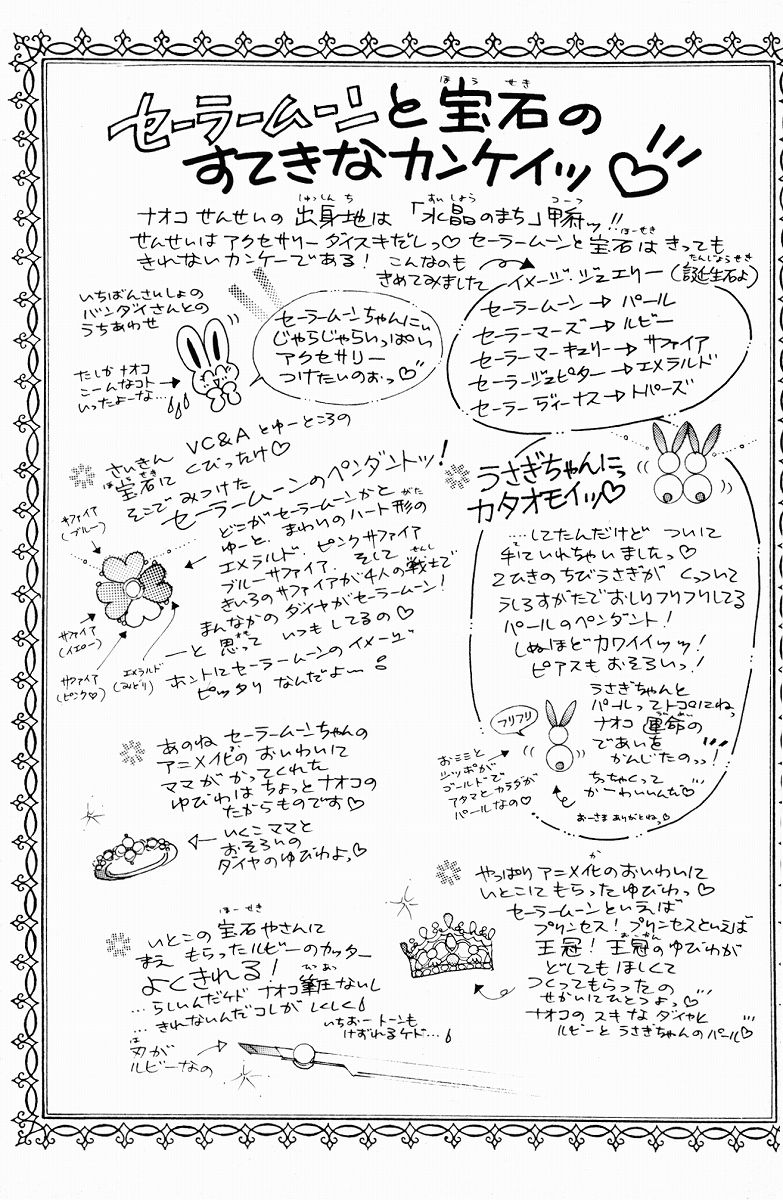 セーラームーンと宝石の
ほう せき
すてきなカンケイッ♡
ナオコ せんせいの 出身地は 「水晶のまち」甲府ッ!!
しゅっしんち すいしょう こーふ
せんせいは アクセサリー ダイスキだしっ♡ セーラームーンと 宝石は きっても
ほーせき
きれない カンケーで ある! こんなのも
きめてみました
イメージ・ジュエリー (誕生石よ)
たんじょうせき
セーラームーン→パール
セーラーマーズ→ルビー
セーラーマーキュリー→サファイア
セーラージュピター→エメラルド
セーラーヴィーナス→トパーズ
いちばんさいしょの
バンダイさんとの
うちあわせ
たしか ナオコ
こーんなコト
いったよーな…
セーラームーンちゃんにぃ
じゃらじゃらいっぱい
アクセサリー
つけたいのぉっ♡
さいきん VC&A とゆーところの
宝石に くびったけ♡
ほうせき
そこで みつけた
セーラームーンのペンダントッ!
どこがセーラームーンかと
ゆーと、まわりのハート形の
がた
エメラルド、ピンクサファイア
ブルーサファイア、そして
きいろのサファイアが4人の戦士で
せんし
まんなかの ダイヤがセーラームーン!
ーと 思って いつも してるの♡
おも
ホントにセーラームーンのイメージ
ピッタリ なんだよー
サファイア
(ブルー)
サファイア
(イエロー)
サファイア
(ピンク♡)
エメラルド
(みどり)
うさぎちゃんにっ
カタオモイッ♡
…してたんだけど ついに
手にいれちゃいましたっ♡
2ひきの ちびうさぎが くっついて
うしろすがたで おしりフリフリしてる
パールのペンダント!
しぬほど カワイイッッ!
ピアスも おそろいっ!
うさぎちゃんと
パールってトコにねっ
ナオコ 運命の
うんめい
であいを
かんじたのっ!
ちっちゃくって
かーわいいんだ♡
おーさま ありがとねっ♡
フリフリ
おミミと
シッポが
ゴールドで
アタマと カラダが
パールなの♡
あのね セーラームーンちゃんの
アニメ化の おいわいに
か
ママが かってくれた
ゆびわは ちょっと ナオコの
たからものです♡
いくこママと
おそろいの
ダイヤのゆびわよっ♡
やっぱり アニメ化の おいわいに
か
いとこに もらった ゆびわっ♡
セーラームーンといえば
プリンセス! プリンセスといえば
王冠! 王冠の ゆびわが
おうかん
どしても ほしくて
つくってもらったの
せかいに ひとつよっ♡
ナオコの スキな ダイヤと
ルビーと うさぎちゃんの パール♡
いとこの 宝石やさんに
ほーせき
まえ もらった ルビーの カッター
よくきれる!
…らしいんだケド ナオコ 筆圧ないし
ひつあつ
…きれないんだコレが しくしく
いちおー トーンも
けずれるケド…
刃が
は
ルビーなの